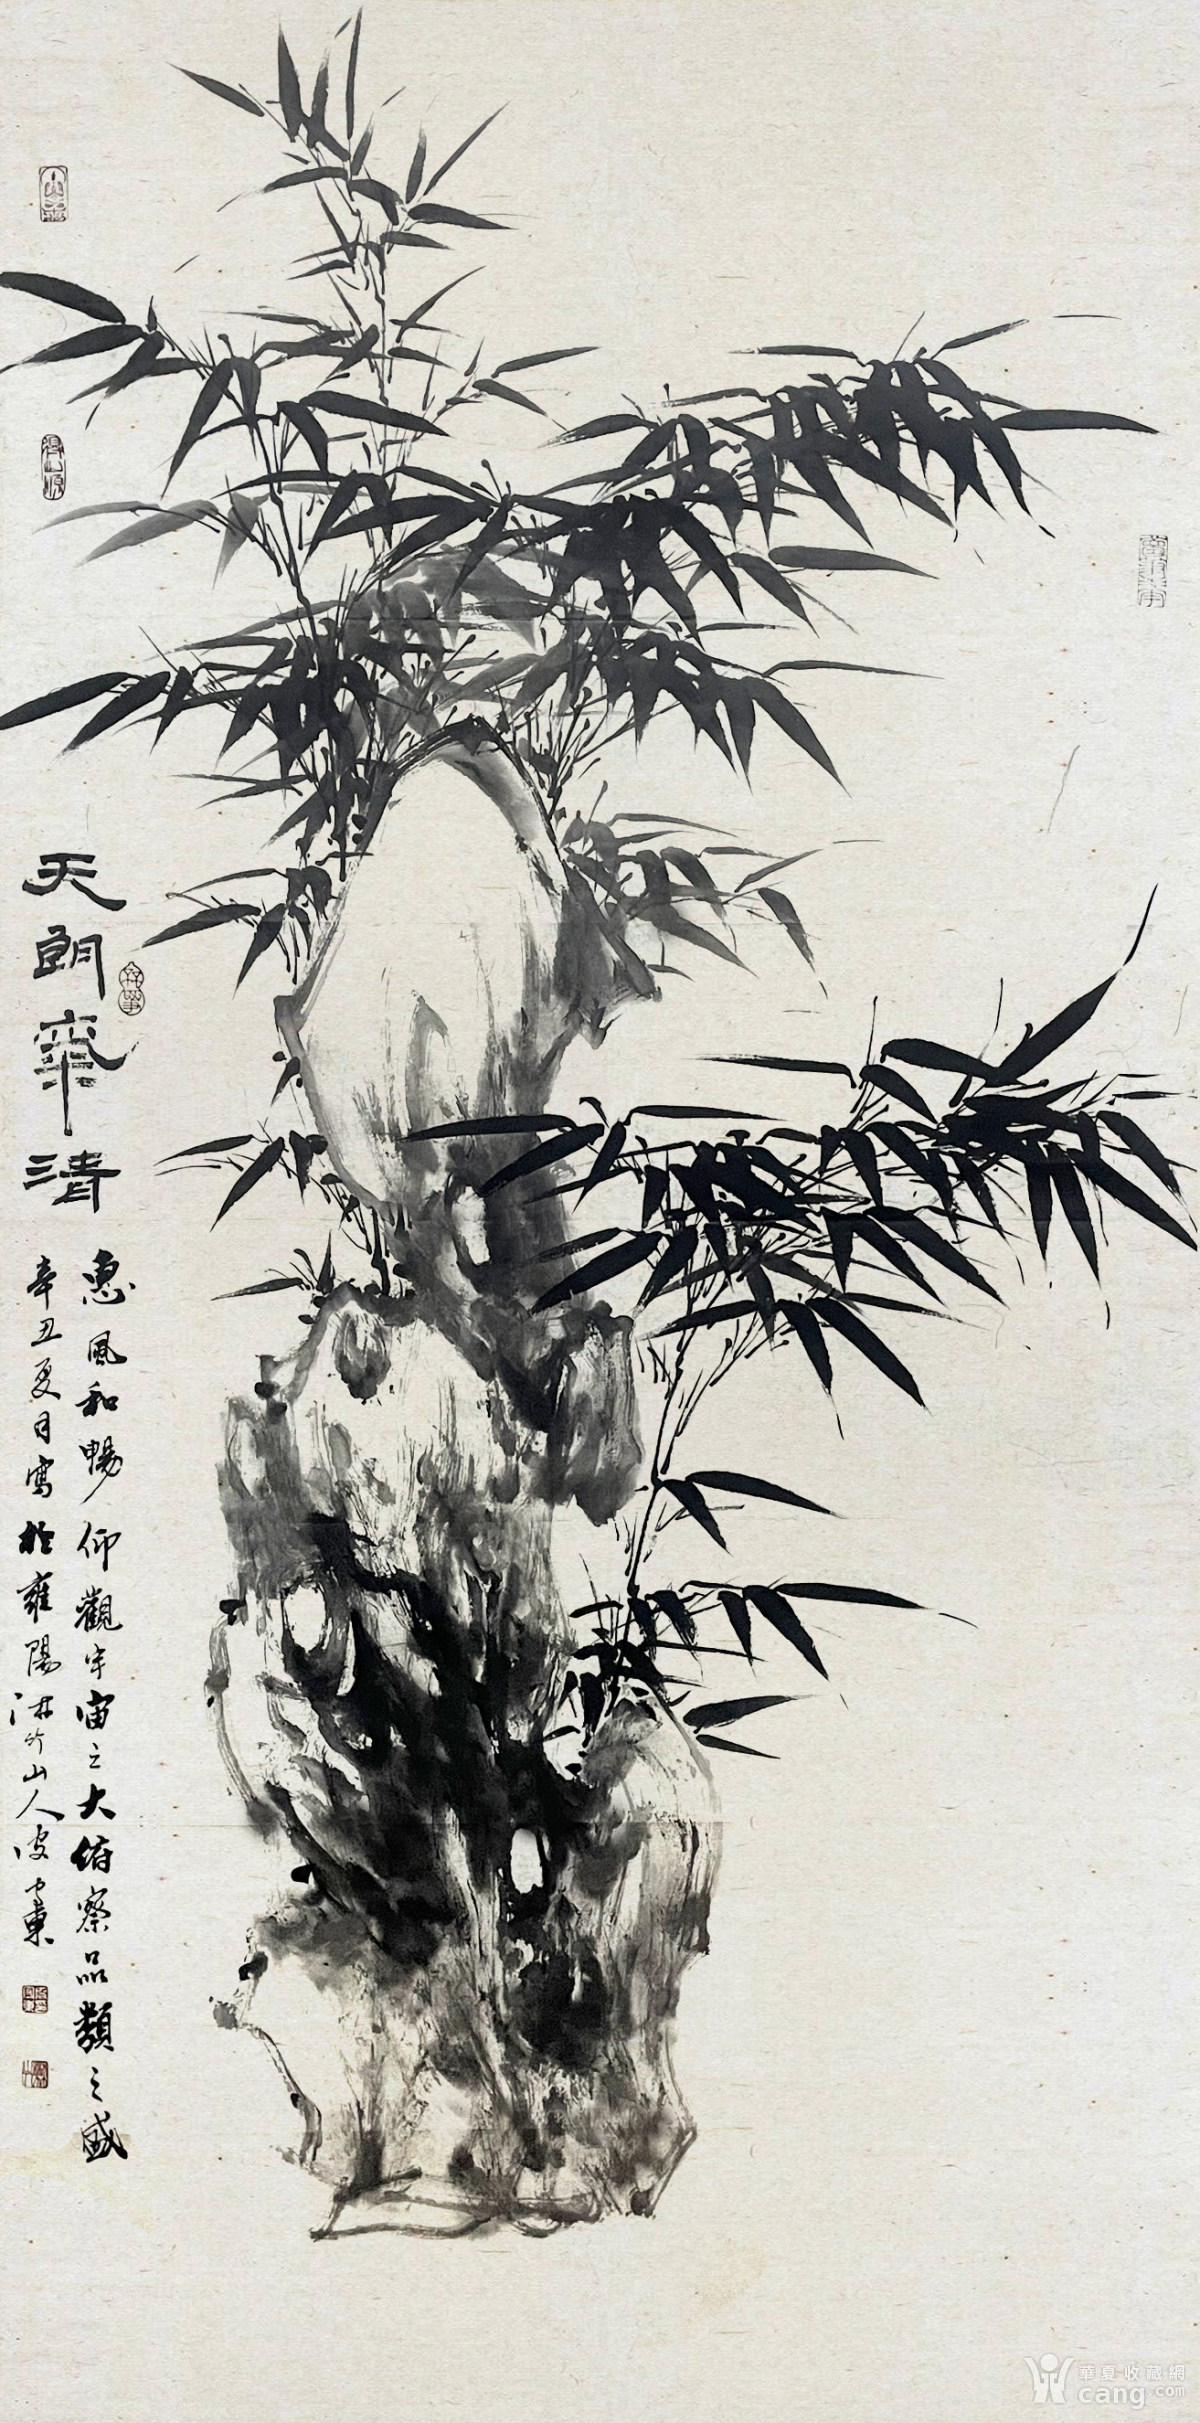 天朗氣清
惠風和暢仰觀宇宙之大俯察品類之盛
辛丑夏月寫於雍陽淋竹山人
華夏收藏網
cang.com